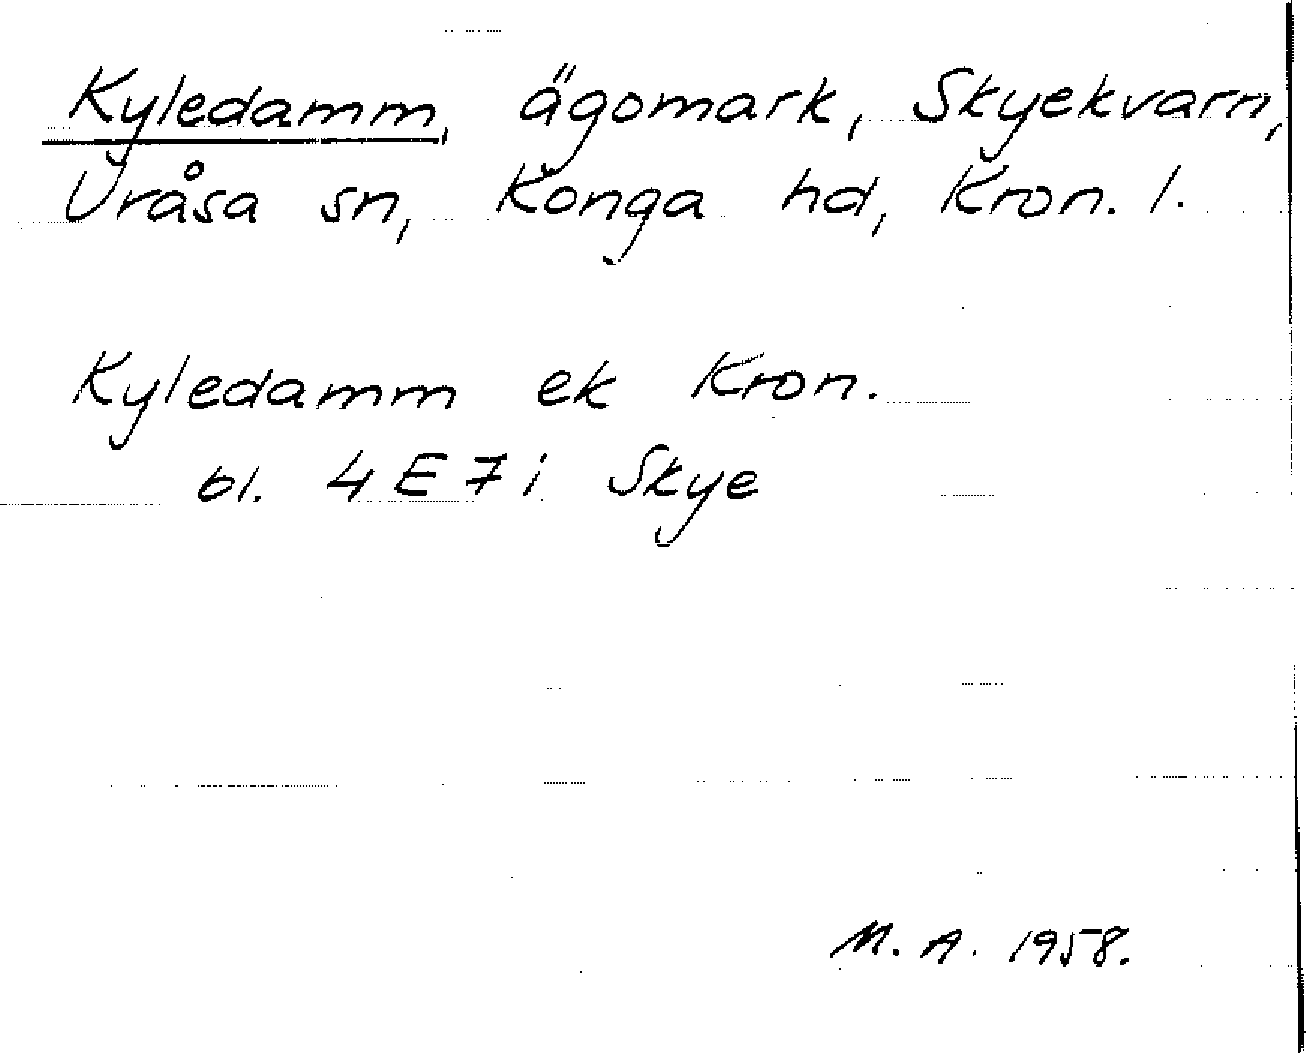 Kyledamm, ägomark, Skyekvarn,
Uråsa sn, Konga hd, Kron. l.
Kyledamm ek Kron.
bl. 4 E 7 i Skye
M. A. 1958.